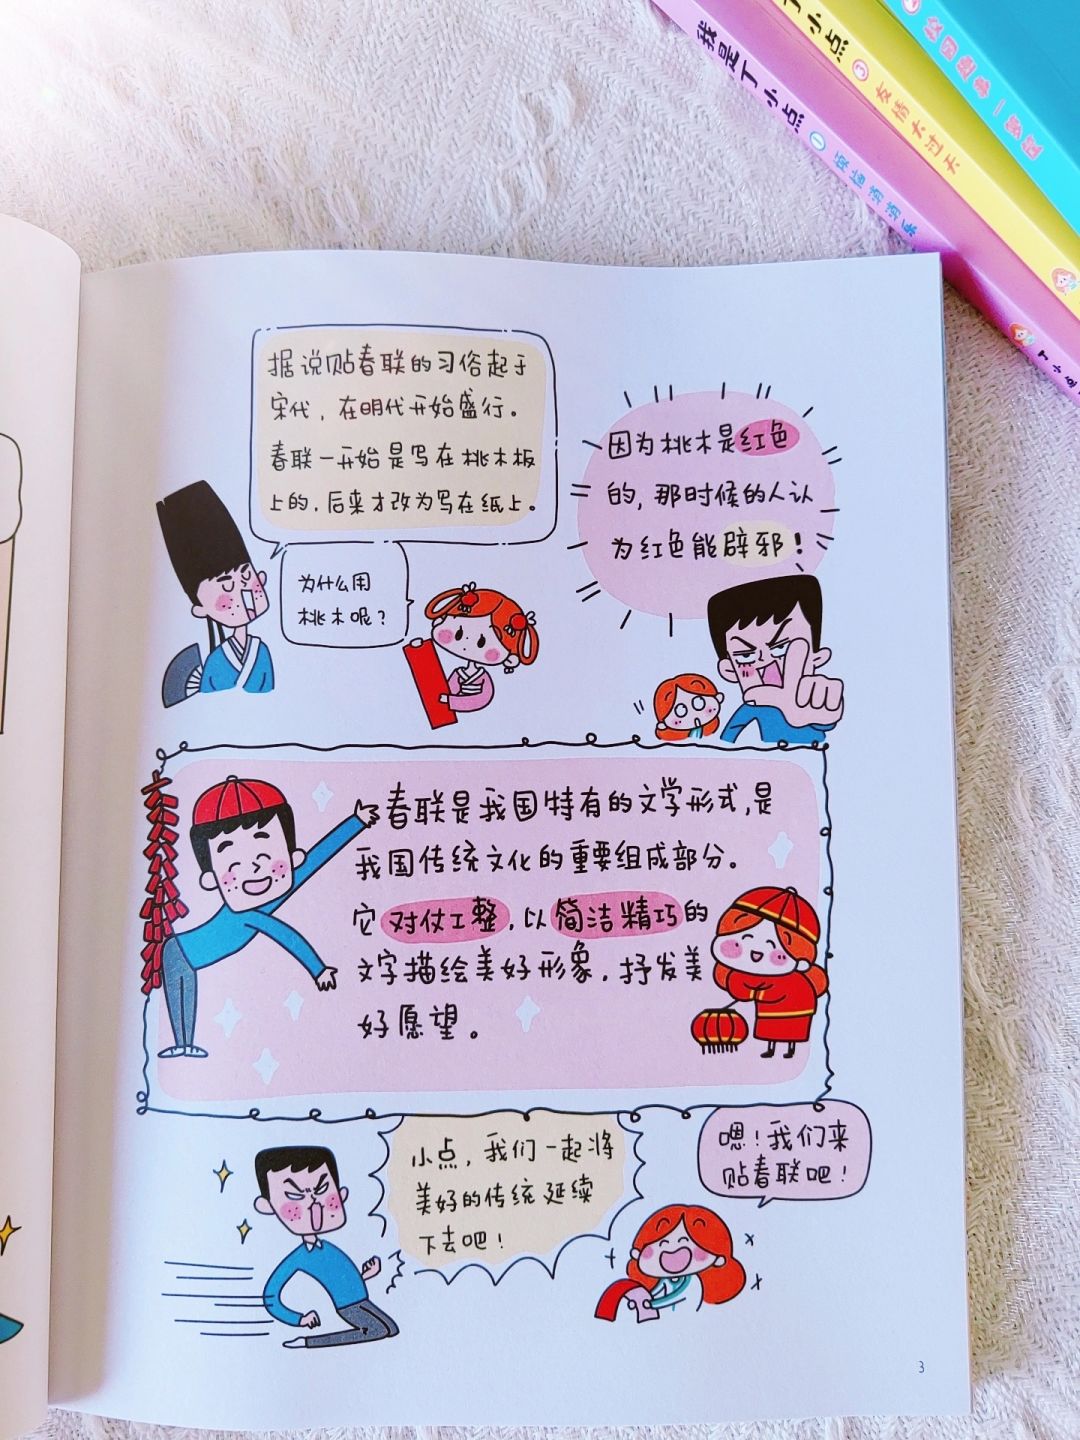 我是丁小点 ① 烦恼消消乐
丁小点 ③ 友情大过天
校园趣事一箩筐
丁小点
据说贴春联的习俗起于
宋代，在明代开始盛行。
春联一开始是写在桃木板
上的，后来才改为写在纸上。
为什么用
桃木呢？
因为桃木是红色
的，那时候的人认
为红色能辟邪！
春联是我国特有的文学形式,是
我国传统文化的重要组成部分。
它对仗工整，以简洁精巧的
文字描绘美好形象，抒发美
好愿望。
小点，我们一起将
美好的传统延续
下去吧！
嗯！我们来
贴春联吧！
3